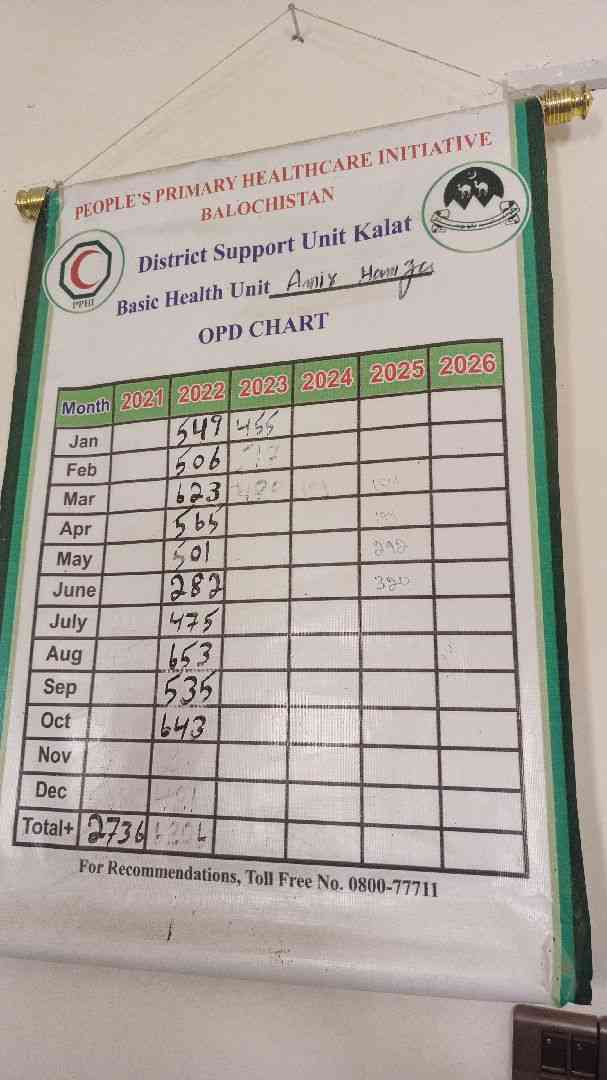 PEOPLE'S PRIMARY HEALTHCARE INITIATIVE
BALOCHISTAN
District Support Unit Kalat
PPHI
Basic Health Unit Amir Hamza
OPD CHART
Month 2021 2022 2023 2024 2025 2026
Jan 549 455
Feb 506
Mar 623
Apr 565
May 501 292
June 282 320
July 475
Aug 653
Sep 535
Oct 643
Nov
Dec
Total+ 2736
For Recommendations, Toll Free No. 0800-77711